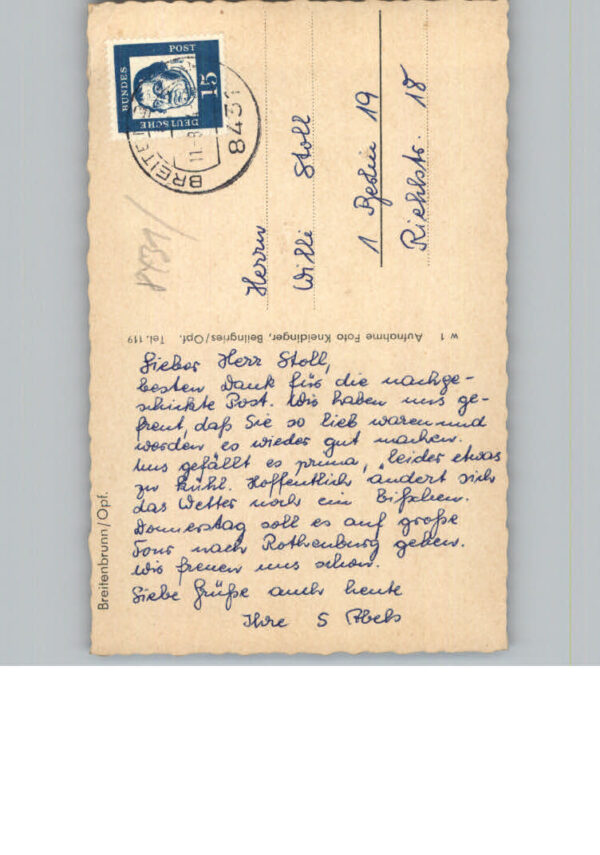 DEUTSCHE
BUNDES
POST
15
BREITEN
11-8
8431
8431/
Herrn
Willi Stoll
1 Berlin 19
Riehlstr. 18
W 1 Aufnahme Foto Kneidinger, Beilngries/Opf. Tel. 119
Breitenbrunn/Opf.
Lieber Herr Stoll,
besten Dank für die nachge-
schickte Post. Wir haben uns ge-
freut, daß Sie so lieb waren und
werden es wieder gut machen.
Uns gefällt es prima, leider etwas
zu kühl. Hoffentlich ändert sich
das Wetter noch ein Bißchen.
Donnerstag soll es auf große
Tour nach Rothenburg gehen.
Wir freuen uns schon.
Liebe Grüße auch heute
Ihre 5